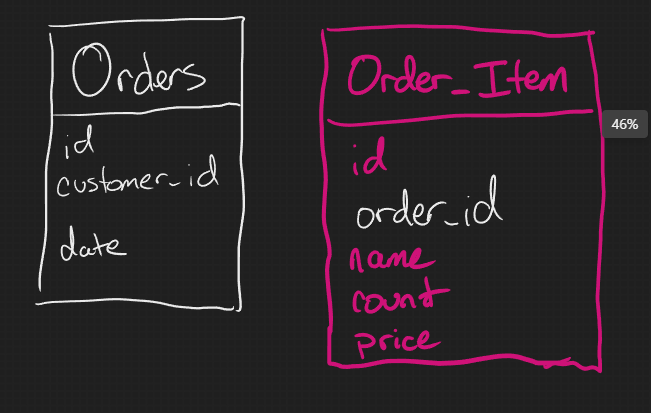 Orders
id
customer_id
date
Order_Item
id
order_id
name
count
price
46%